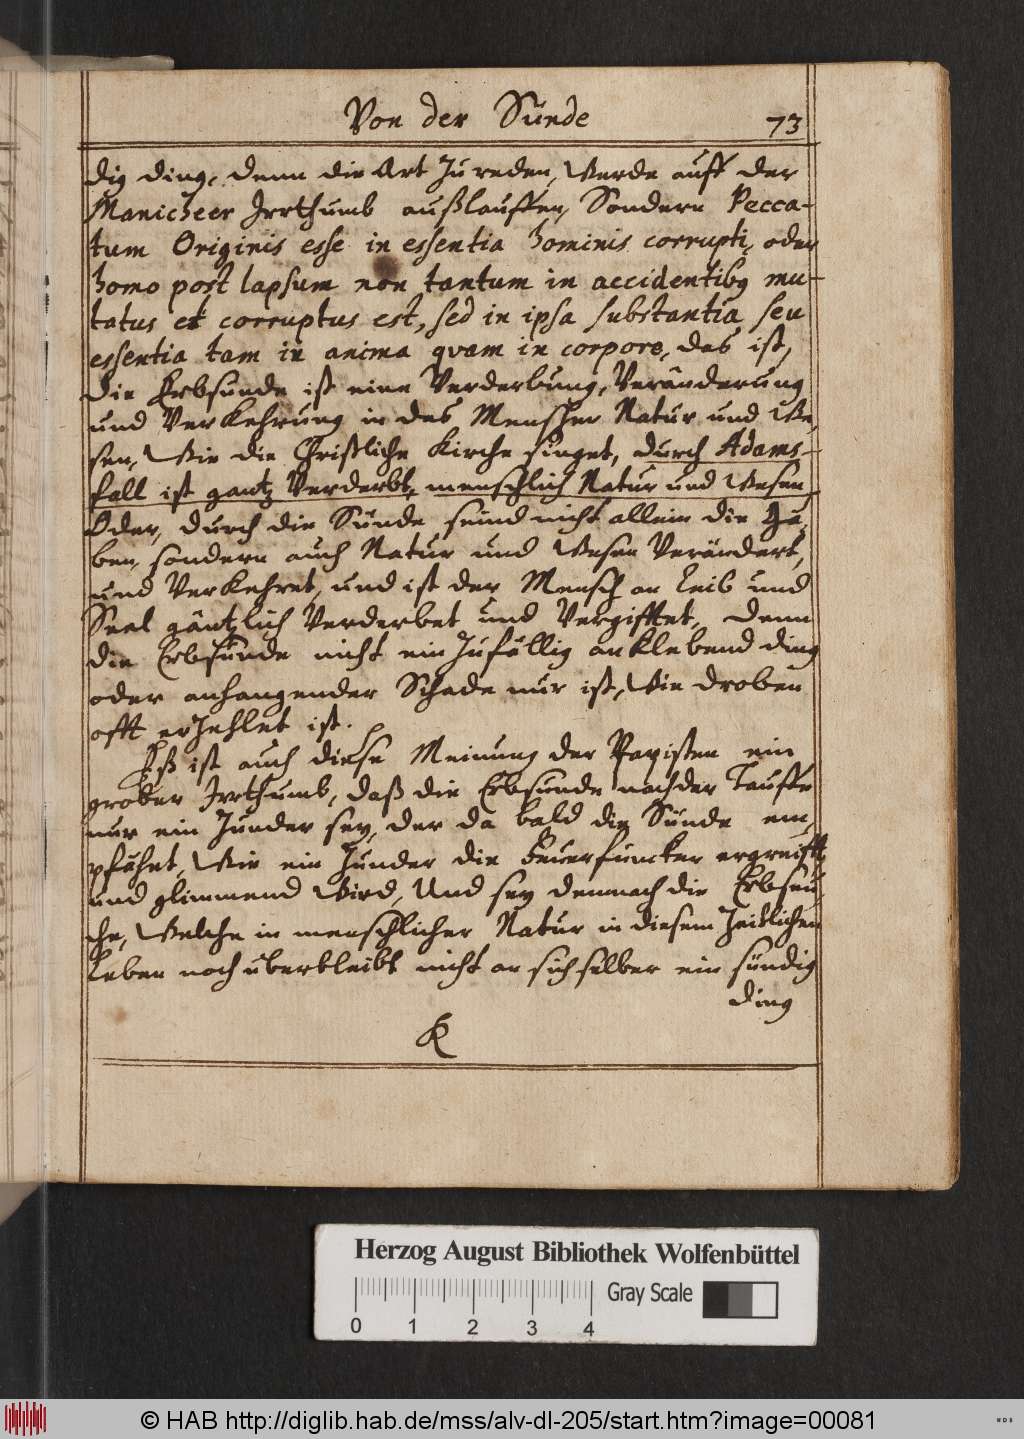 Von der Sünde
73
dig ding, denn die Art zu reden, werde auff der
Manicheer Irrthumb außlauffen, Sondern Pecca-
tum Originis esse in essentia hominis corrupti, oder
homo post lapsum non tantum in accidentibus mu-
tatus et corruptus est, sed in ipsa substantia seu
essentia tam in anima quam in corpore, das ist,
die Erbsunde ist eine Verderbung, Veränderung
und Verkehrung in des Menschen Natur und We-
sen, Wie die Christliche Kirche singet, durch Adams-
fall ist gantz Verderbt, menschlich Natur und Wesen
Oder, durch die Sünde seind nicht allein die Ga-
ben, sondern auch Natur und Wesen Verändert,
und Verkehret, und ist der Mensch an Leib und
Seel gäntzlich Verderbet und Vergifftet, denn
die Erbsünde nicht ein zufällig anklebend ding
oder anhangender Schade nur ist, Wie droben
offt erzehlet ist.
Eß ist auch diese Meinung der Papisten ein
grober Irrthumb, daß die Erbsunde nach der Tauffe
nur ein Zunder sey, der da bald die Sünde em-
pfähet, Wie ein Zunder die Feuerfuncken ergreifft,
und glimmend Wird, Und sey demnach die Erbseu-
che, Welche in menschlicher Natur in diesem Zeitlichen
Leben noch uberbleibt nicht an sich selber ein sündig
ding
K
Herzog August Bibliothek Wolfenbüttel
Gray Scale
0 1 2 3 4
© HAB http://diglib.hab.de/mss/alv-dl-205/start.htm?image=00081